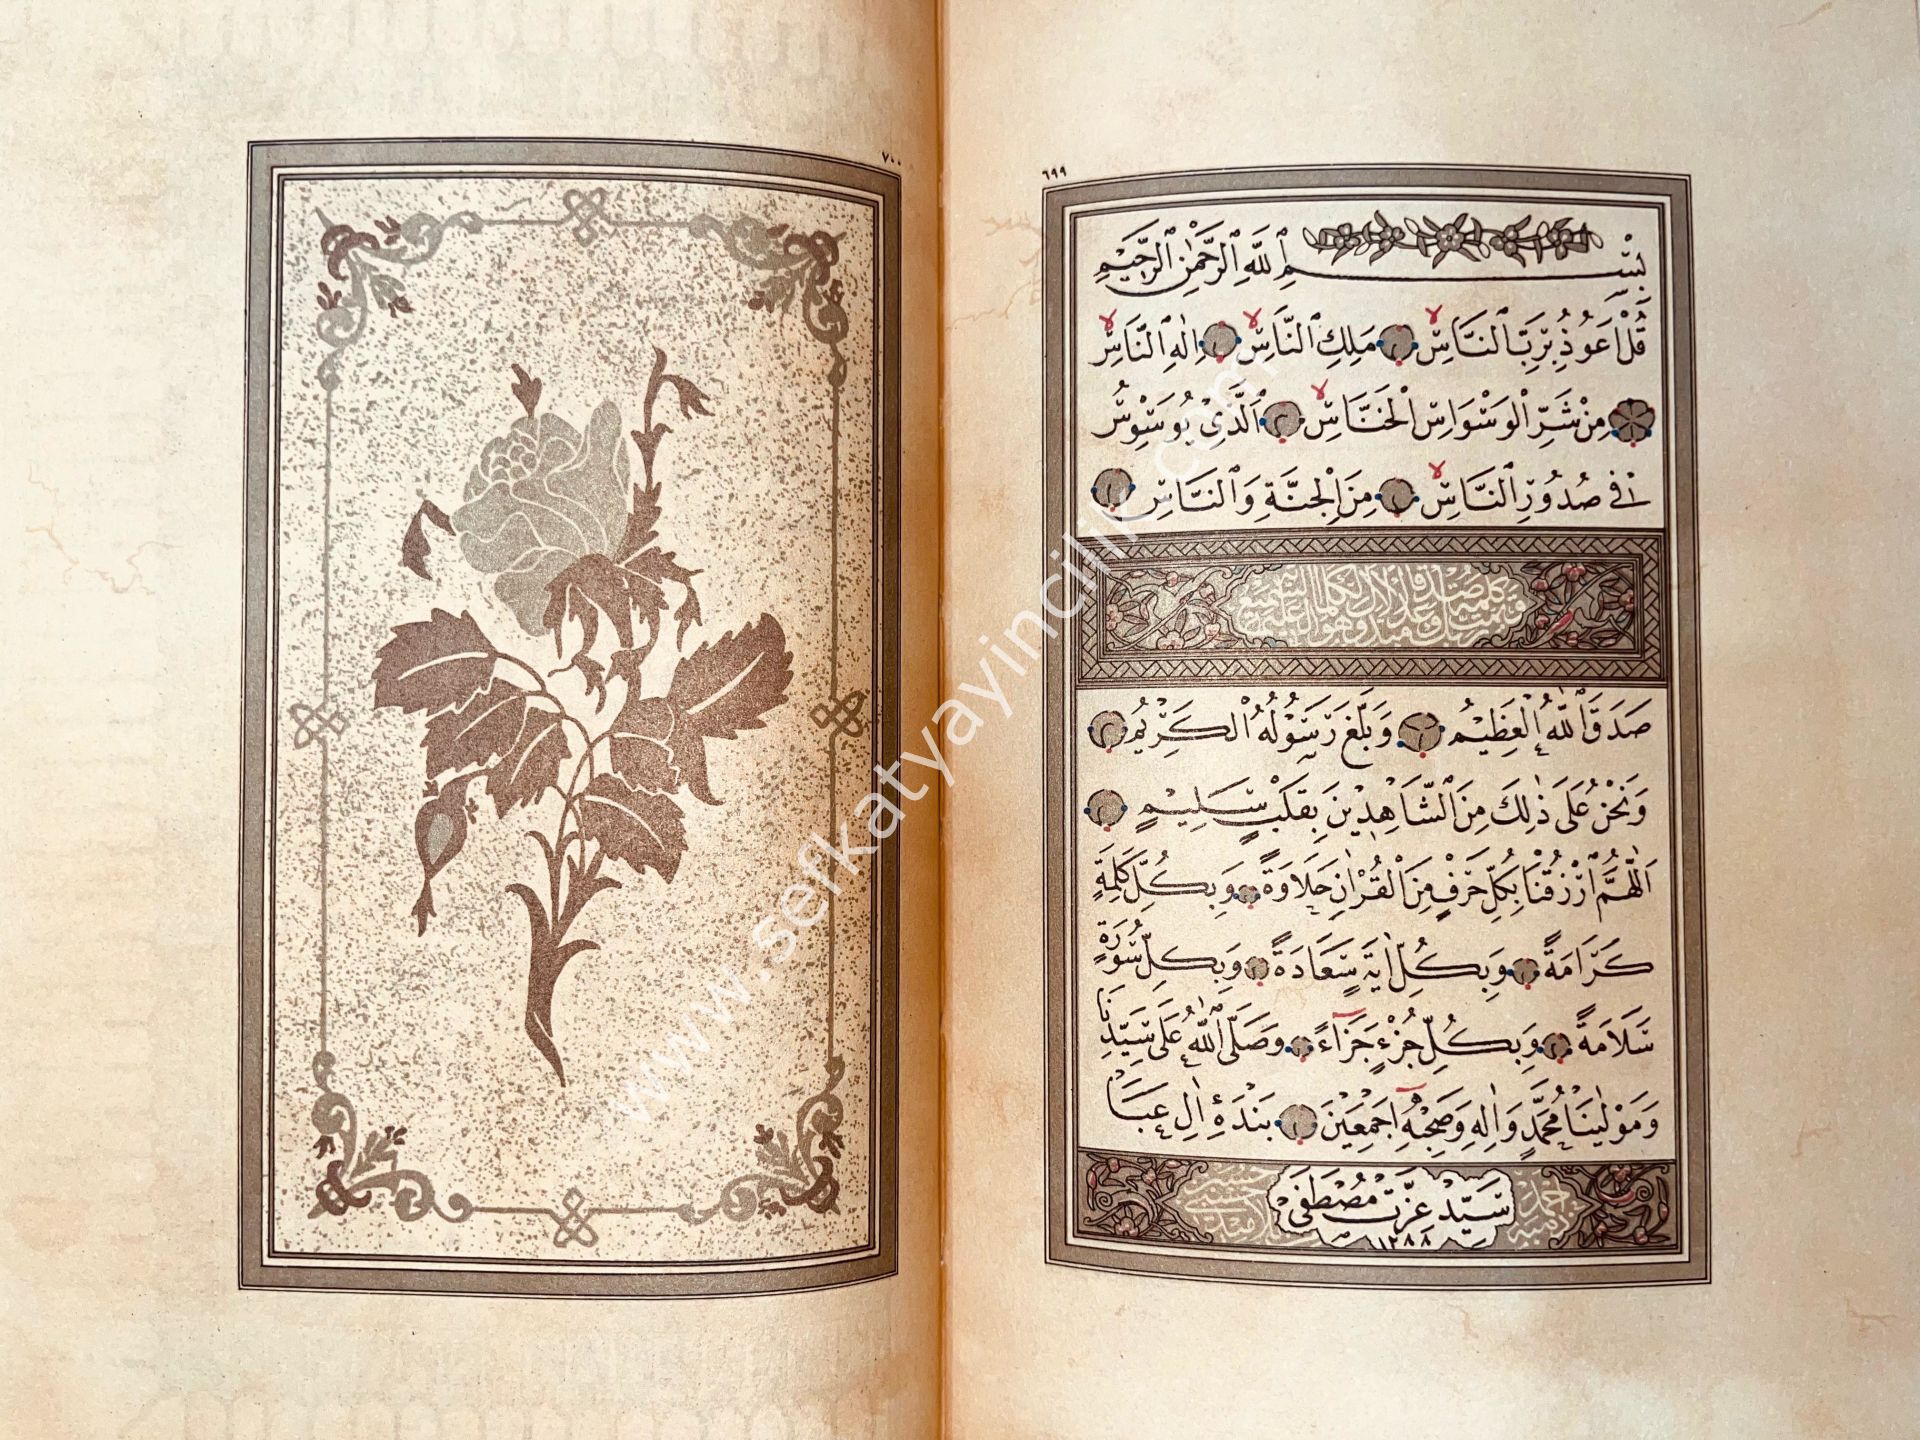 ٦٩٩
بِسْمِ ٱللّٰهِ ٱلرَّحْمٰنِ ٱلرَّحِيمِ
قُلْ اَعُوذُ بِرَبِّ ٱلنَّاسِ لا مَلِكِ ٱلنَّاسِ لا اِلٰهِ ٱلنَّاسِ لا
مِنْ شَرِّ ٱلْوَسْوَاسِ ٱلْخَنَّاسِ لا ٱلَّذِى يُوَسْوِسُ
فِى صُدُورِ ٱلنَّاسِ لا مِنَ ٱلْجِنَّةِ وَٱلنَّاسِ
صَدَقَ ٱللّٰهُ ٱلْعَظِيمُ وَبَلَّغَ رَسُولُهُ ٱلْكَرِيمُ
وَنَحْنُ عَلَى ذٰلِكَ مِنَ ٱلشَّاهِدِينَ بِقَلْبٍ سَلِيمٍ
اَللّٰهُمَّ ٱرْزُقْنَا بِكُلِّ حَرْفٍ مِنَ ٱلْقُرْاٰنِ حَلَاوَةً وَبِكُلِّ كَلِمَةٍ
كَرَامَةً وَبِكُلِّ اٰيَةٍ سَعَادَةً وَبِكُلِّ سُورَةٍ
سَلَامَةً وَبِكُلِّ جُزْءٍ جَزَٓاءً وَصَلَّى ٱللّٰهُ عَلَى سَيِّدِنَا
وَمَوْلٰينَا مُحَمَّدٍ وَاٰلِهِ وَصَحْبِهٓ اَجْمَعِينَ بَنْدَهٔ اٰلِ عَبَا
سَيِّد عِزَّت مُصْطَفَى
١٢٨٨
٧٠٠
www.sefkatyayincilik.com